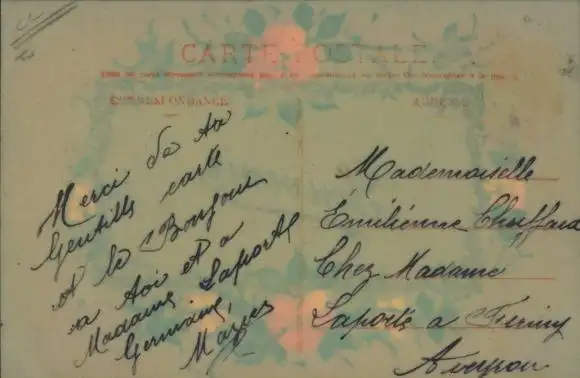 CARTE POSTALE
CORRESPONDANCE
Merci de ta
Gentille carte
et le Bonjour
a toi et a
Madame Laporte
Germaine
ADRESSE
Mademoiselle
Émiliénne Chauffard
Chez Madame
Laporte a Firmy
Aveyron